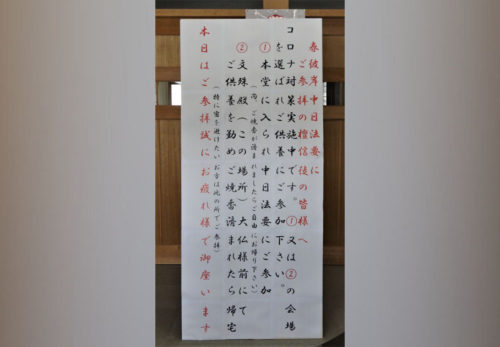 春彼岸中日法要に
ご参拝の檀信徒の皆様へ
コロナ対策実施中です。①又は②の会場
を選ばれご供養にご参加下さい。
①本堂に入られ中日法要にご参加
(尚、ご焼香が済まれましたらご自由にお帰り下さい)
②文殊殿(この場所)大仏様前にて
ご供養を勤めご焼香済まれたら帰宅
(特に密を避けたいお方は此の所でご参拝)
本日はご参拝誠にお疲れ様で御座います